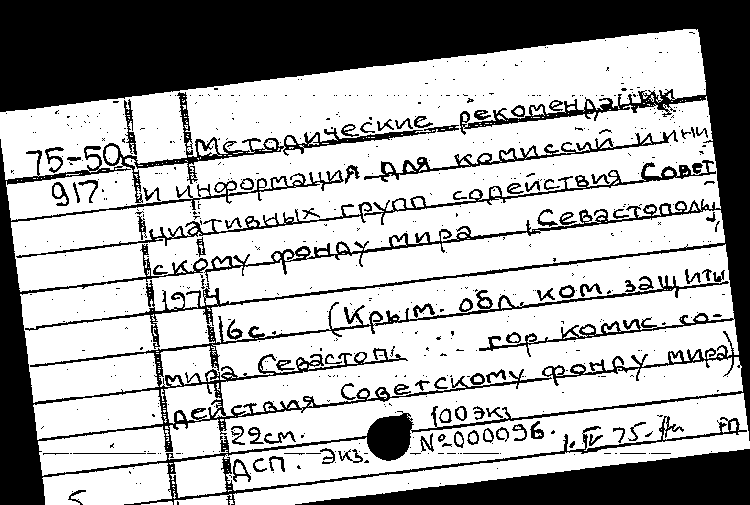 75-50с Методические рекомендации
917 и информация для комиссий и ини
циативных групп содействия Совет
скому фонду мира. [Севастополь],
1974
16с. (Крым. обл. ком. защиты
мира. Севастоп. ... гор. комис. со-
действия Советскому фонду мира)
22см. 100экз
ДСП. Экз. №000096. 1.IV 75.